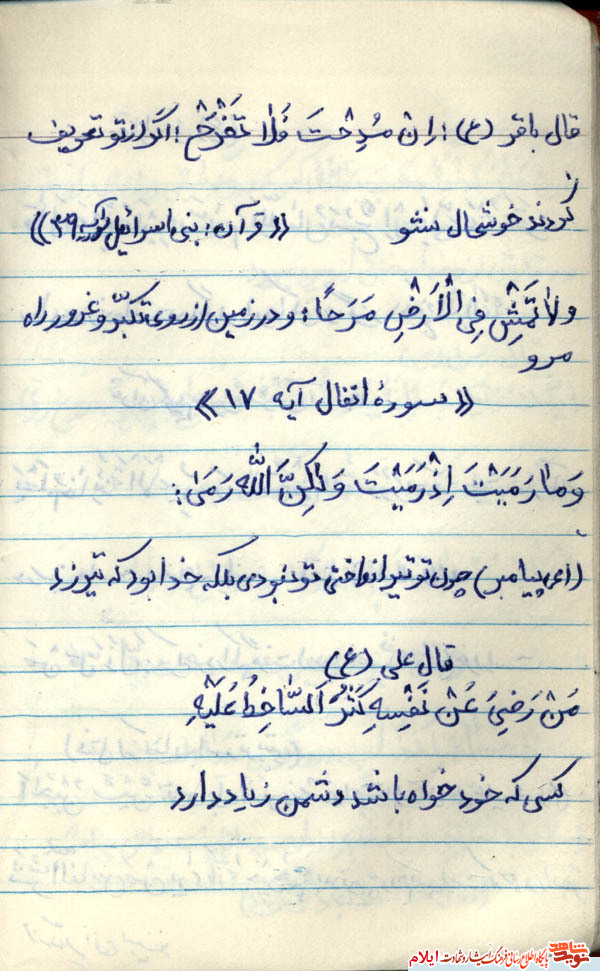 قال باقر (ع) : اِن مُدِحْتَ فَلا تَفْرَحْ : اگر از تو تعریف
کردند خوشحال نشو « قرآن : بنی اسرائیل آیه ۳۹ »
ولا تَمْشِ فِی الْاَرْضِ مَرَحًا : و در زمین از روی تکبّر و غرور راه
مرو
« سورهٔ انفال آیه ۱۷ »
وَ ما رَمَیْتَ اِذْ رَمَیْتَ وَ لٰکِنَّ اللّٰهَ رَمَیٰ :
(ای پیامبر) چون تو تیر انداختی تو نبودی بلکه خدا بود که تیر زد
قال علی (ع)
مَنْ رَضِیَ عَنْ نَفْسِهِ کَثُرَ السّاخِطُ عَلَیْهِ
کسی که خود خواه باشد دشمن زیاد دارد
نوید شاهد
پایگاه اطلاع رسانی فرهنگ ایثار و شهادت ایلام